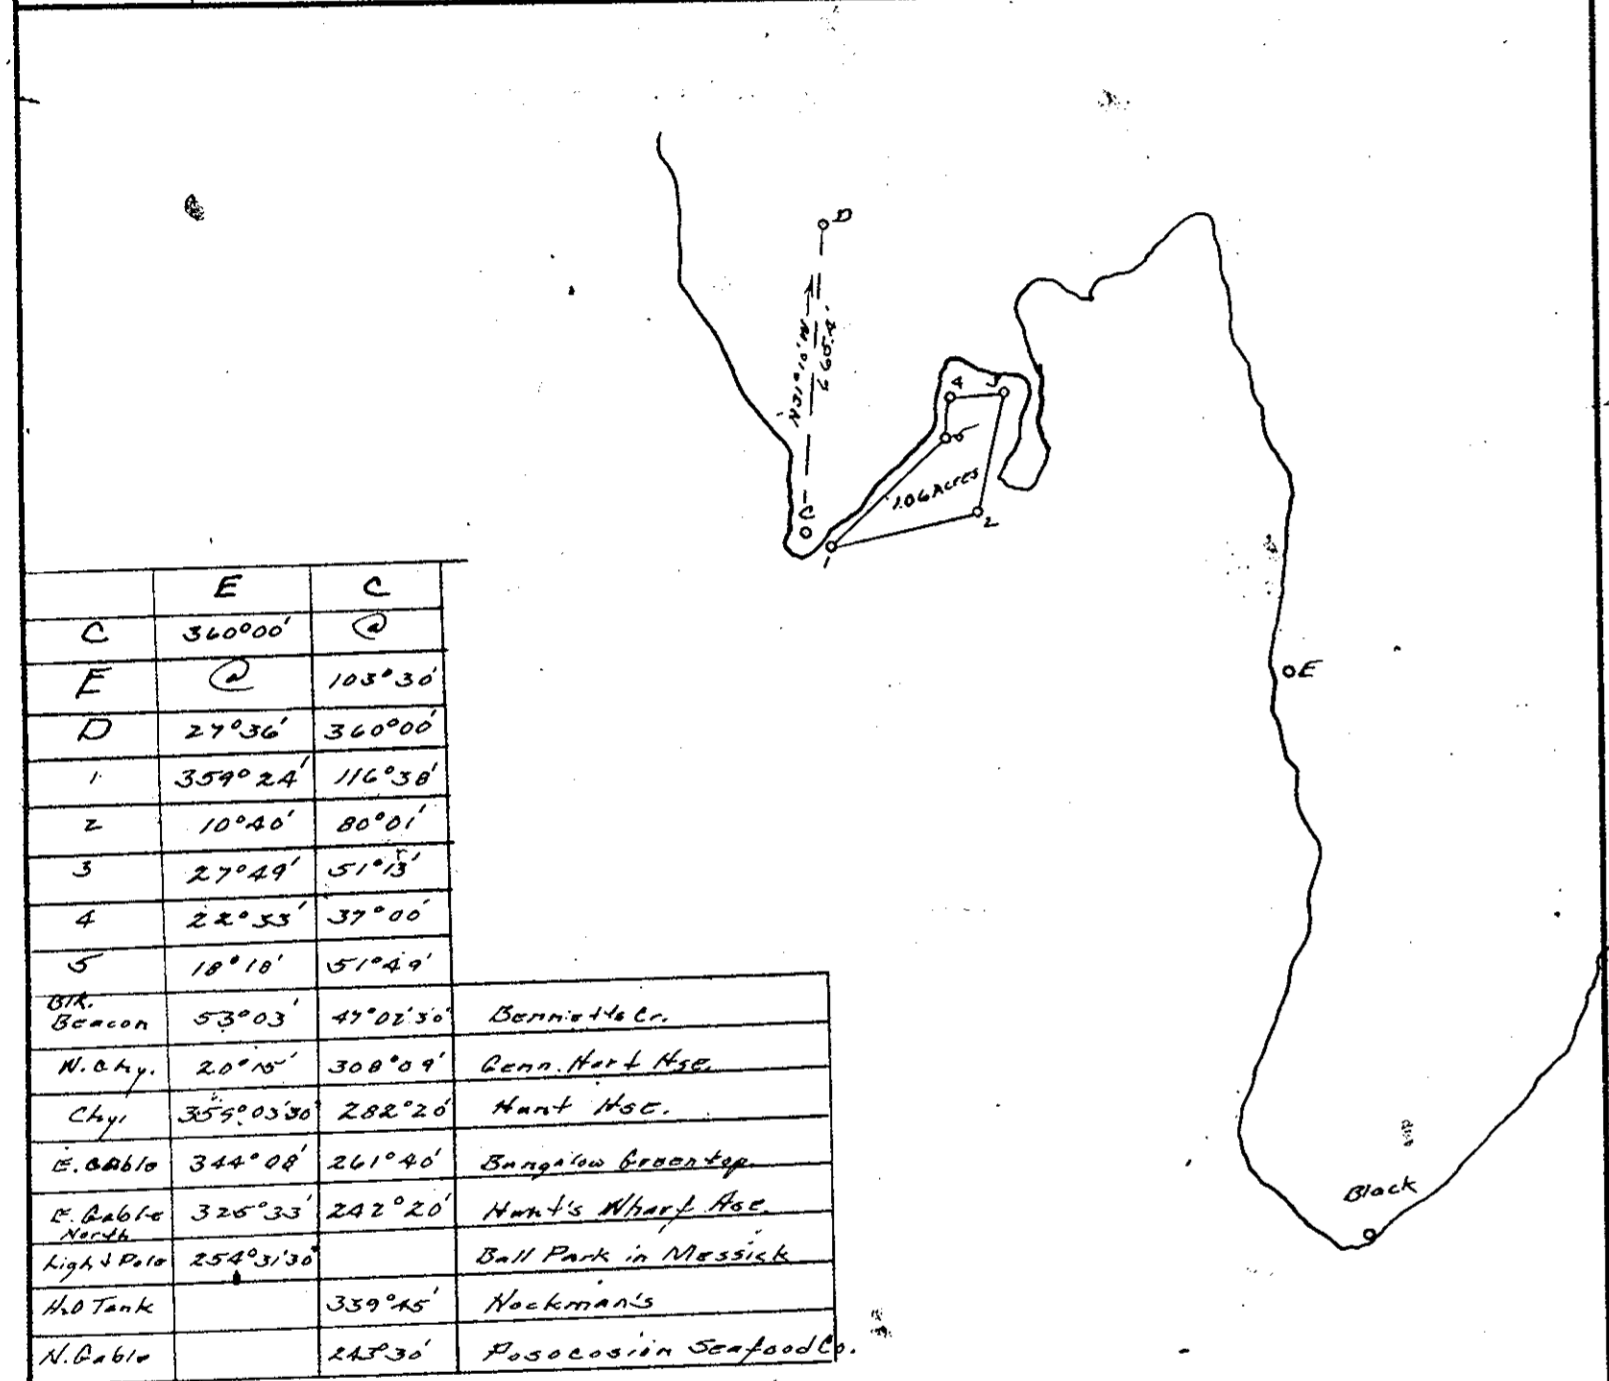 D
N31°10'W
665.4'
4
3
5
1.06 ACRES
C
2
1
E
Black
E C
C 360°00' @
E @ 103°30'
D 27°36' 360°00'
1 359°24' 116°38'
2 10°40' 80°01'
3 27°49' 51°13'
4 22°53' 37°00'
5 18°18' 51°49'
Blk.
Beacon 53°03' 47°02'30" Bennietts Cr.
N. Chy. 20°15' 308°09' Genn. Hart Hse.
Chy. 03'30" 282°20' Hunt Hse.
E. Gable 344°08' 261°40' Bungalow Greentop
E. Gable 325°33' 242°20' Hunt's Wharf Hse.
North
Light Pole 254°31'30" Ball Park in Messick
H2O Tank 339°45' Hockman's
N. Gable 243°30' Posocosion Seafood Co.